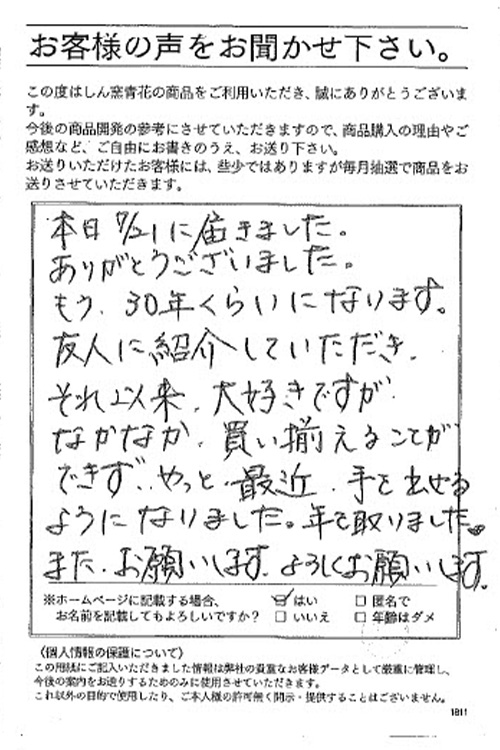 お客様の声をお聞かせ下さい。
この度はしん窯青花の商品をご利用いただき、誠にありがとうございま
す。
今後の商品開発の参考にさせていただきますので、商品購入の理由やご
感想など、ご自由にお書きのうえ、お送り下さい。
お送りいただけたお客様には、些少ではありますが毎月抽選で商品をお
送りさせていただきます。
本日7/21に届きました。
ありがとうございました。
もう、30年くらいになります。
友人に紹介していただき、
それ以来、大好きですが、
なかなか、買い揃えることが
できず、やっと最近、手を出せる
ようになりました。年を取りました。
また、お願いします。よろしくお願いします。
※ホームページに記載する場合、 ☑ はい □ 匿名で
お名前を記載してもよろしいですか? □ いいえ □ 年齢はダメ
〈個人情報の保護について〉
この用紙にご記入いただきました情報は弊社の貴重なお客様データとして厳重に管理し、
今後の案内をお送りするためのみに使用させていただきます。
これ以外の目的で使用したり、ご本人様の許可無く開示・提供することはございません。
1811